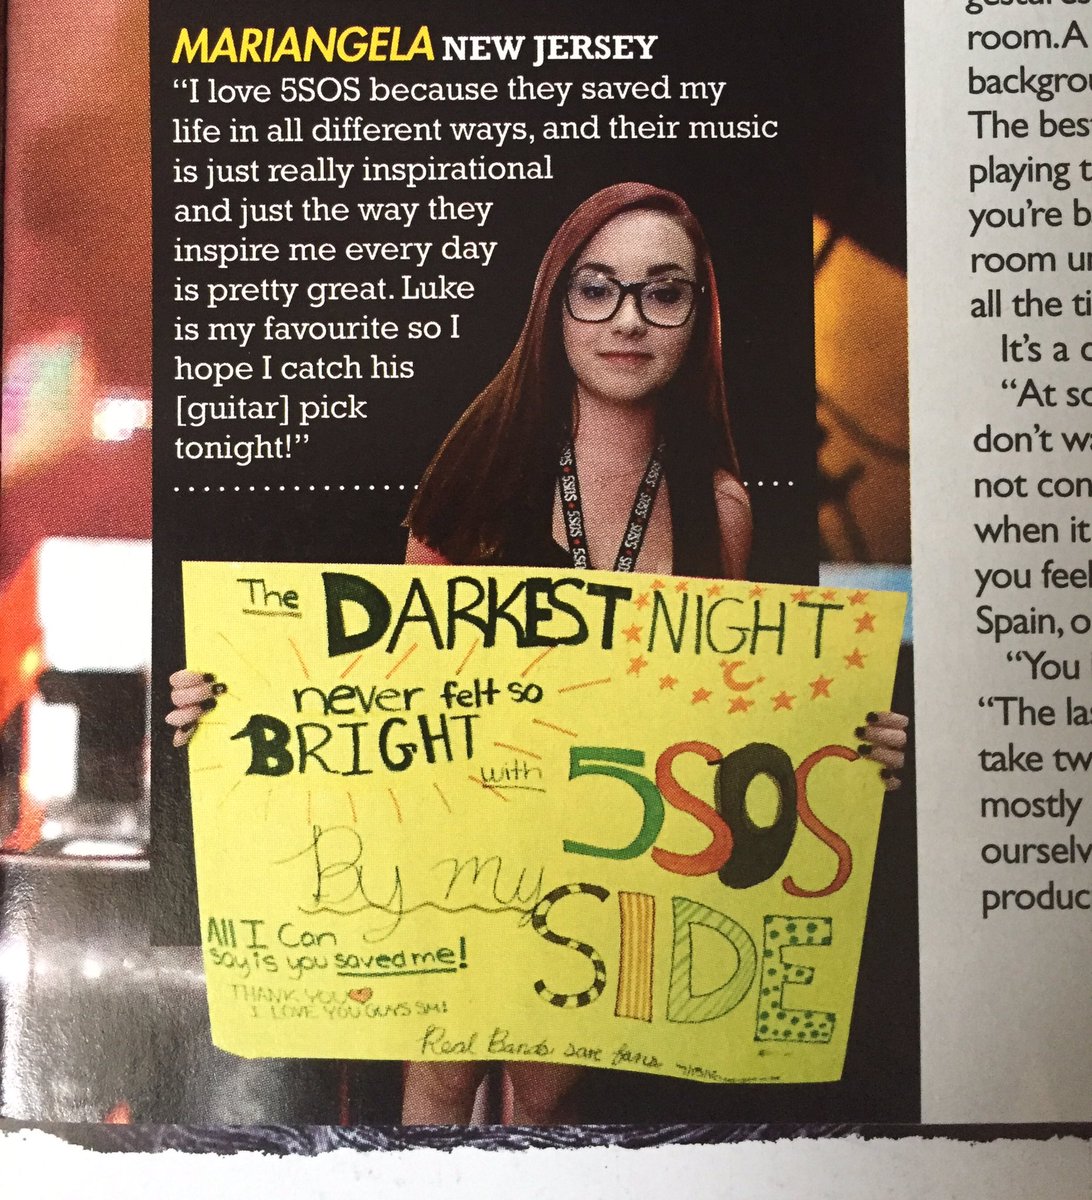 MARIANGELA NEW JERSEY
“I love 5SOS because they saved my
life in all different ways, and their music
is just really inspirational
and just the way they
inspire me every day
is pretty great. Luke
is my favourite so I
hope I catch his
[guitar] pick
tonight!”
5SOS 5SOS 5SOS 5SOS
The DARKEST NIGHT
never felt so
BRIGHT
with 5SOS
By my
SIDE
All I Can
say is you saved me!
THANK YOU
I LOVE YOU GUYS SM!
Real Bands save fans
room. A
The best
playing t
you’re b
room
all the
It’s a
“At
don’t
not
when it
you feel
Spain,
“You
“The
take
mostly